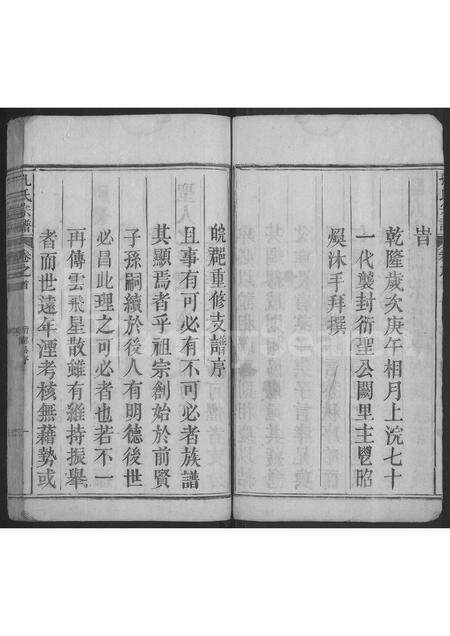 旹
乾隆歲次庚午相月上浣七十
一代襲封衍聖公闕里主鬯昭
煥沐手拜撰
皖郡重修支譜序
且事有可必有不可必者族譜
其顯焉者乎祖宗創始於前賢
子孫嗣續於後人有明德後世
必昌此理之可必者也若不一
再傳雲飛星散雖有維持振舉
者而世遠年湮考核無藉勢或
孔氏宗譜 卷之首